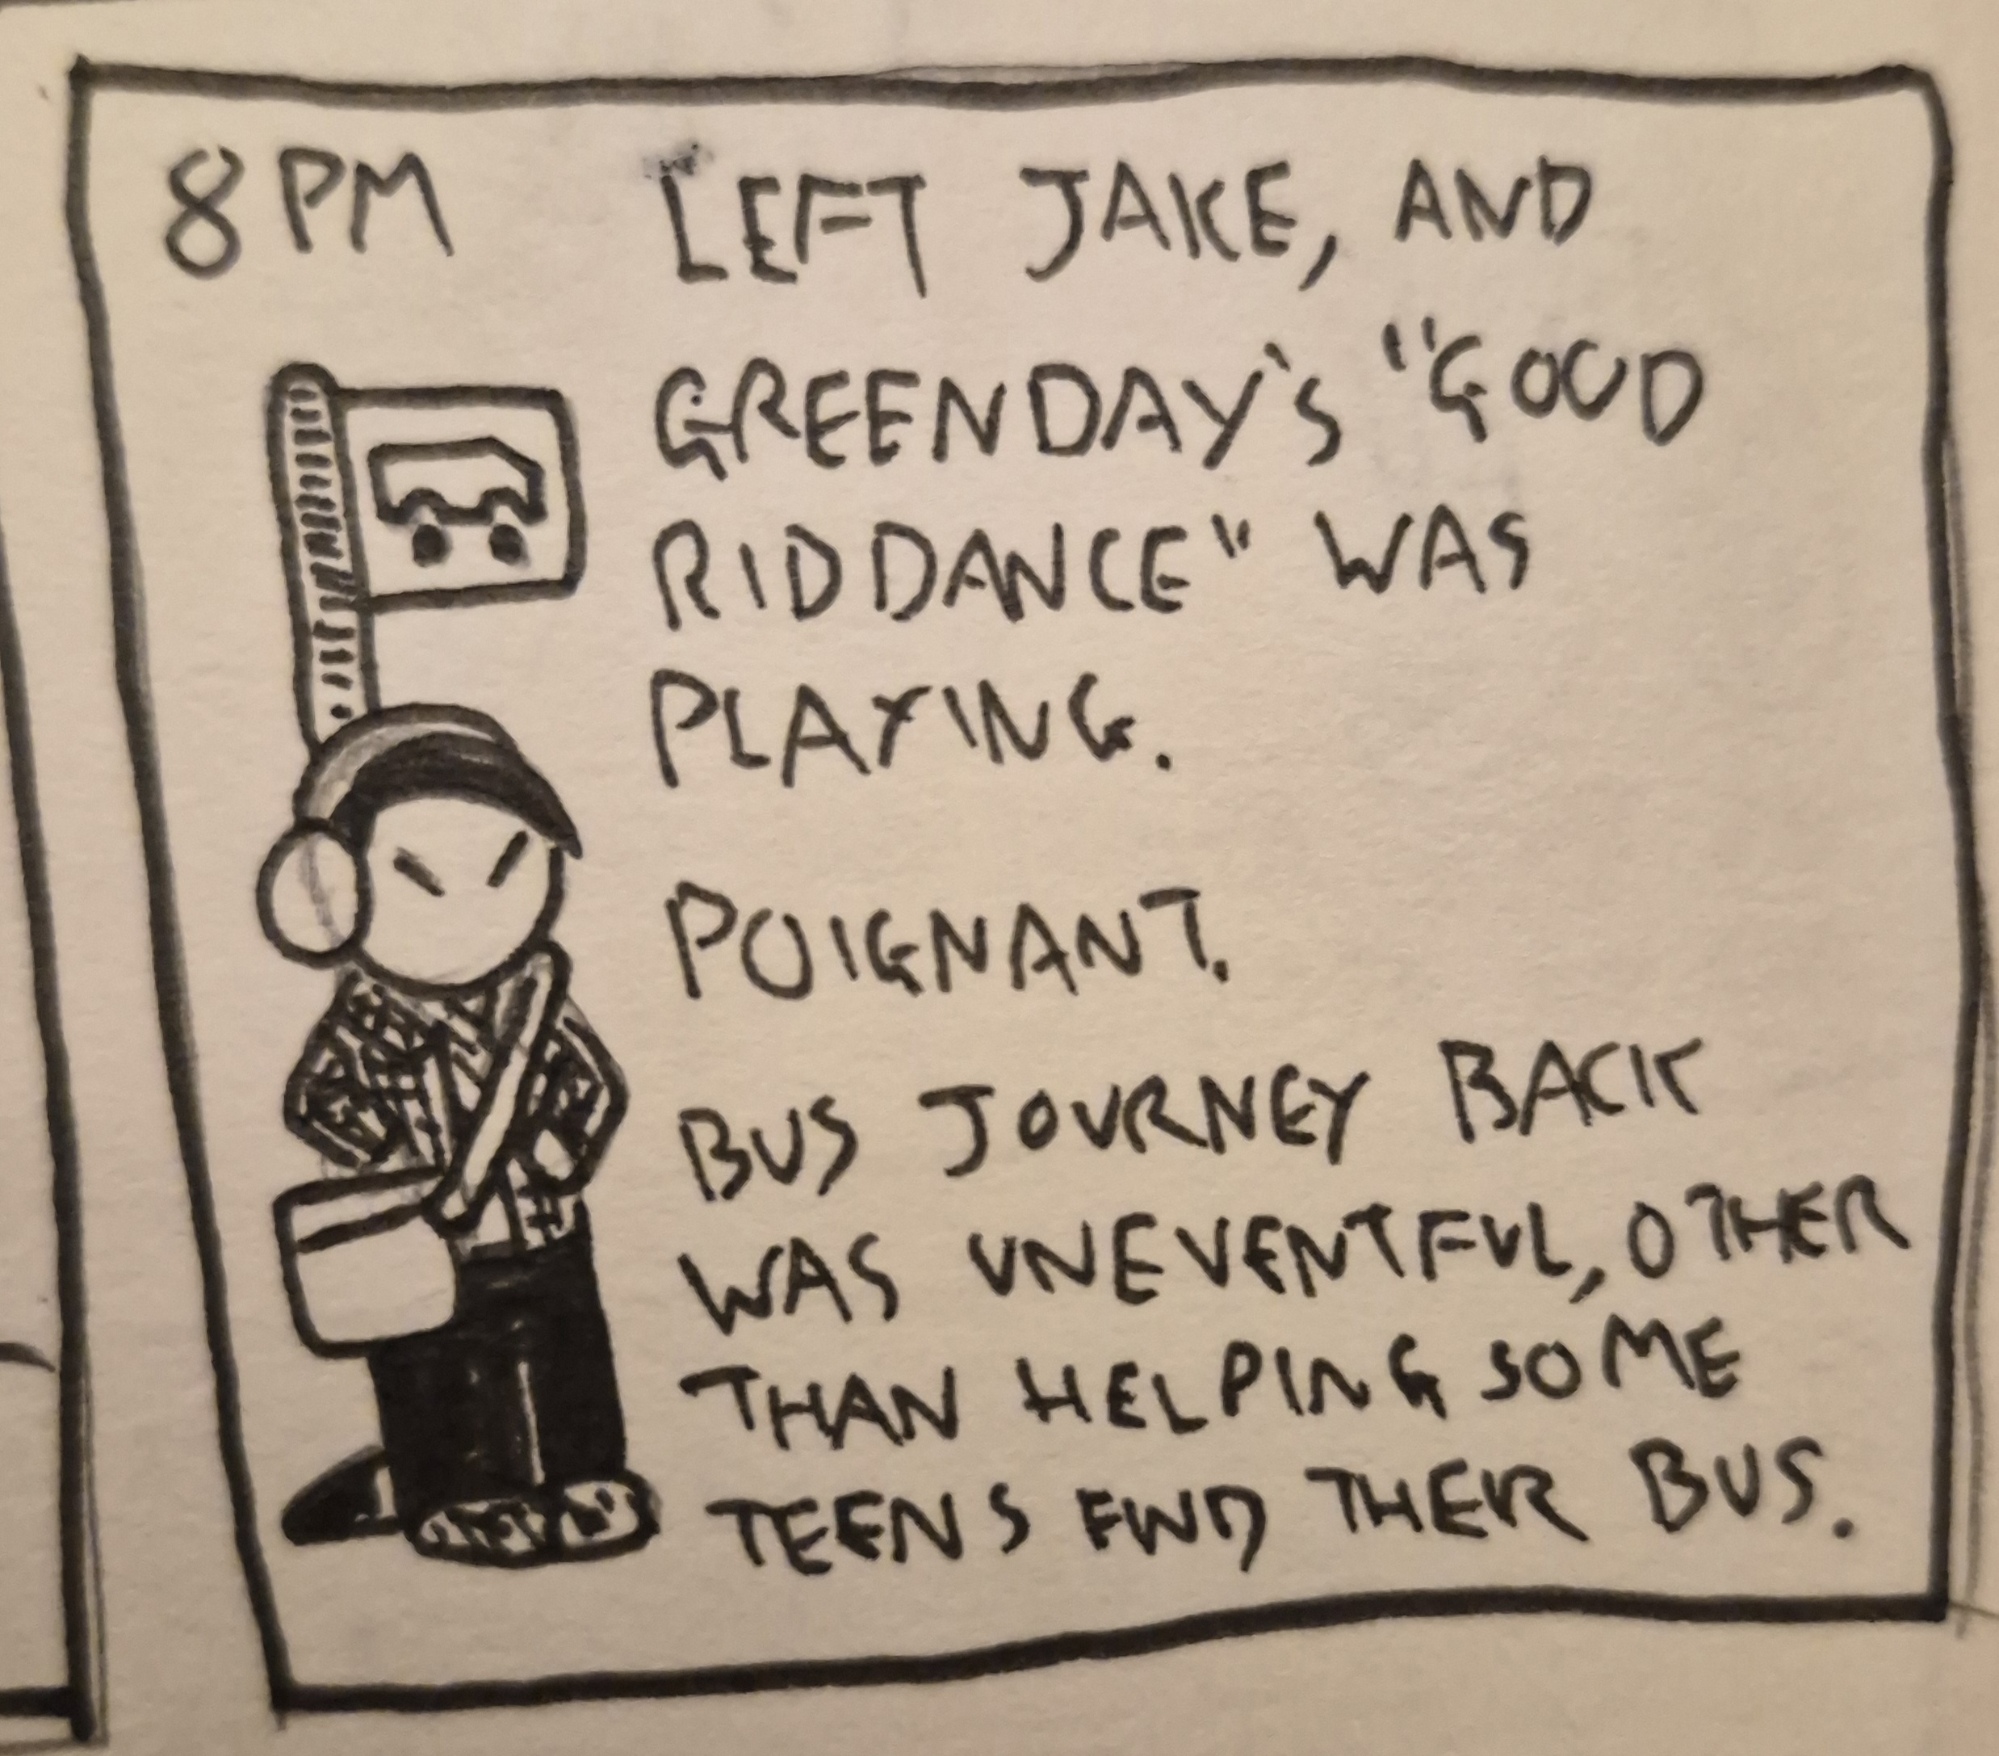 8PM
LEFT JAKE, AND
GREENDAY'S "GOOD
RIDDANCE" WAS
PLAYING.
POIGNANT.
BUS JOURNEY BACK
WAS UNEVENTFUL, OTHER
THAN HELPING SOME
TEENS FIND THEIR BUS.